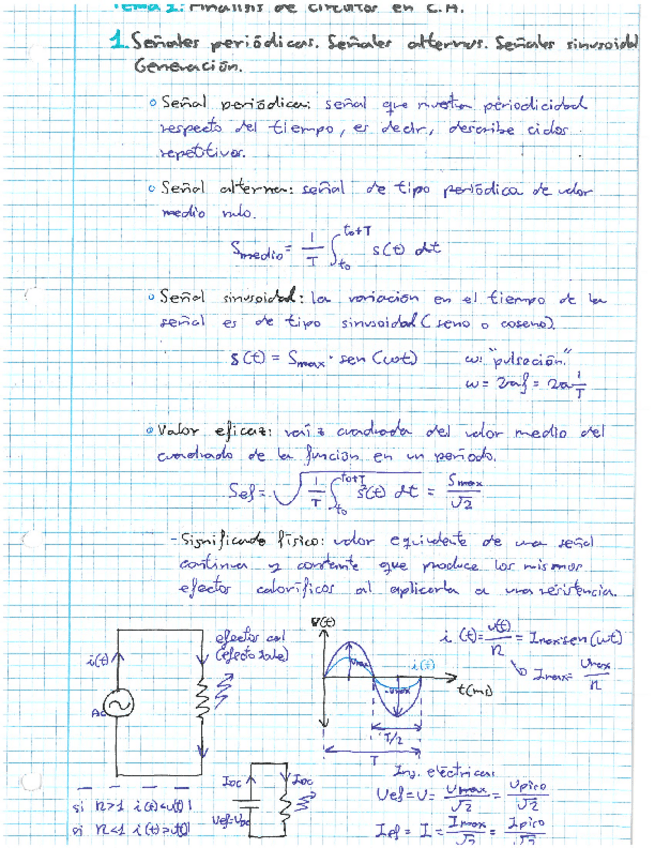 Tema 2: Análisis de circuitos en C.A.
1. Señales periódicas. Señales alternas. Señales sinusoidal
Generación.
Señal periódica: señal que muestra periodicidad
respecto del tiempo, es decir, describe ciclos
repetitivos.
Señal alterna: señal de tipo periódica de valor
medio nulo.
Smedio = 1/T ∫_{to}^{to+T} s(t) dt
Señal sinusoidal: la variación en el tiempo de la
señal es de tipo sinusoidal (seno o coseno).
s(t) = Smax · sen(ωt)   ω: "pulsación"
ω = 2πf = 2π 1/T
Valor eficaz: raíz cuadrada del valor medio del
cuadrado de la función en un periodo.
Sef = √(1/T ∫_{to}^{to+T} s²(t) dt) = Smax/√2
- Significado físico: valor equivalente de una señal
continua y constante que produce los mismos
efectos caloríficos al aplicarla a una resistencia.
i(t)
efectos cal
(efecto Joule)
V(t)
Vmax
i(t)
t(ms)
T/2
T
i(t) = v(t)/R = Imax sen(ωt)
Imax = Vmax/R
IDC
IDC
Vef=VDC
si R>1 i(t)<v(t)
si R<1 i(t)>v(t)
Ing. eléctricas
Vef = V = Vmax/√2 = Vpico/√2
Ief = I = Imax/√2 = Ipico/√2